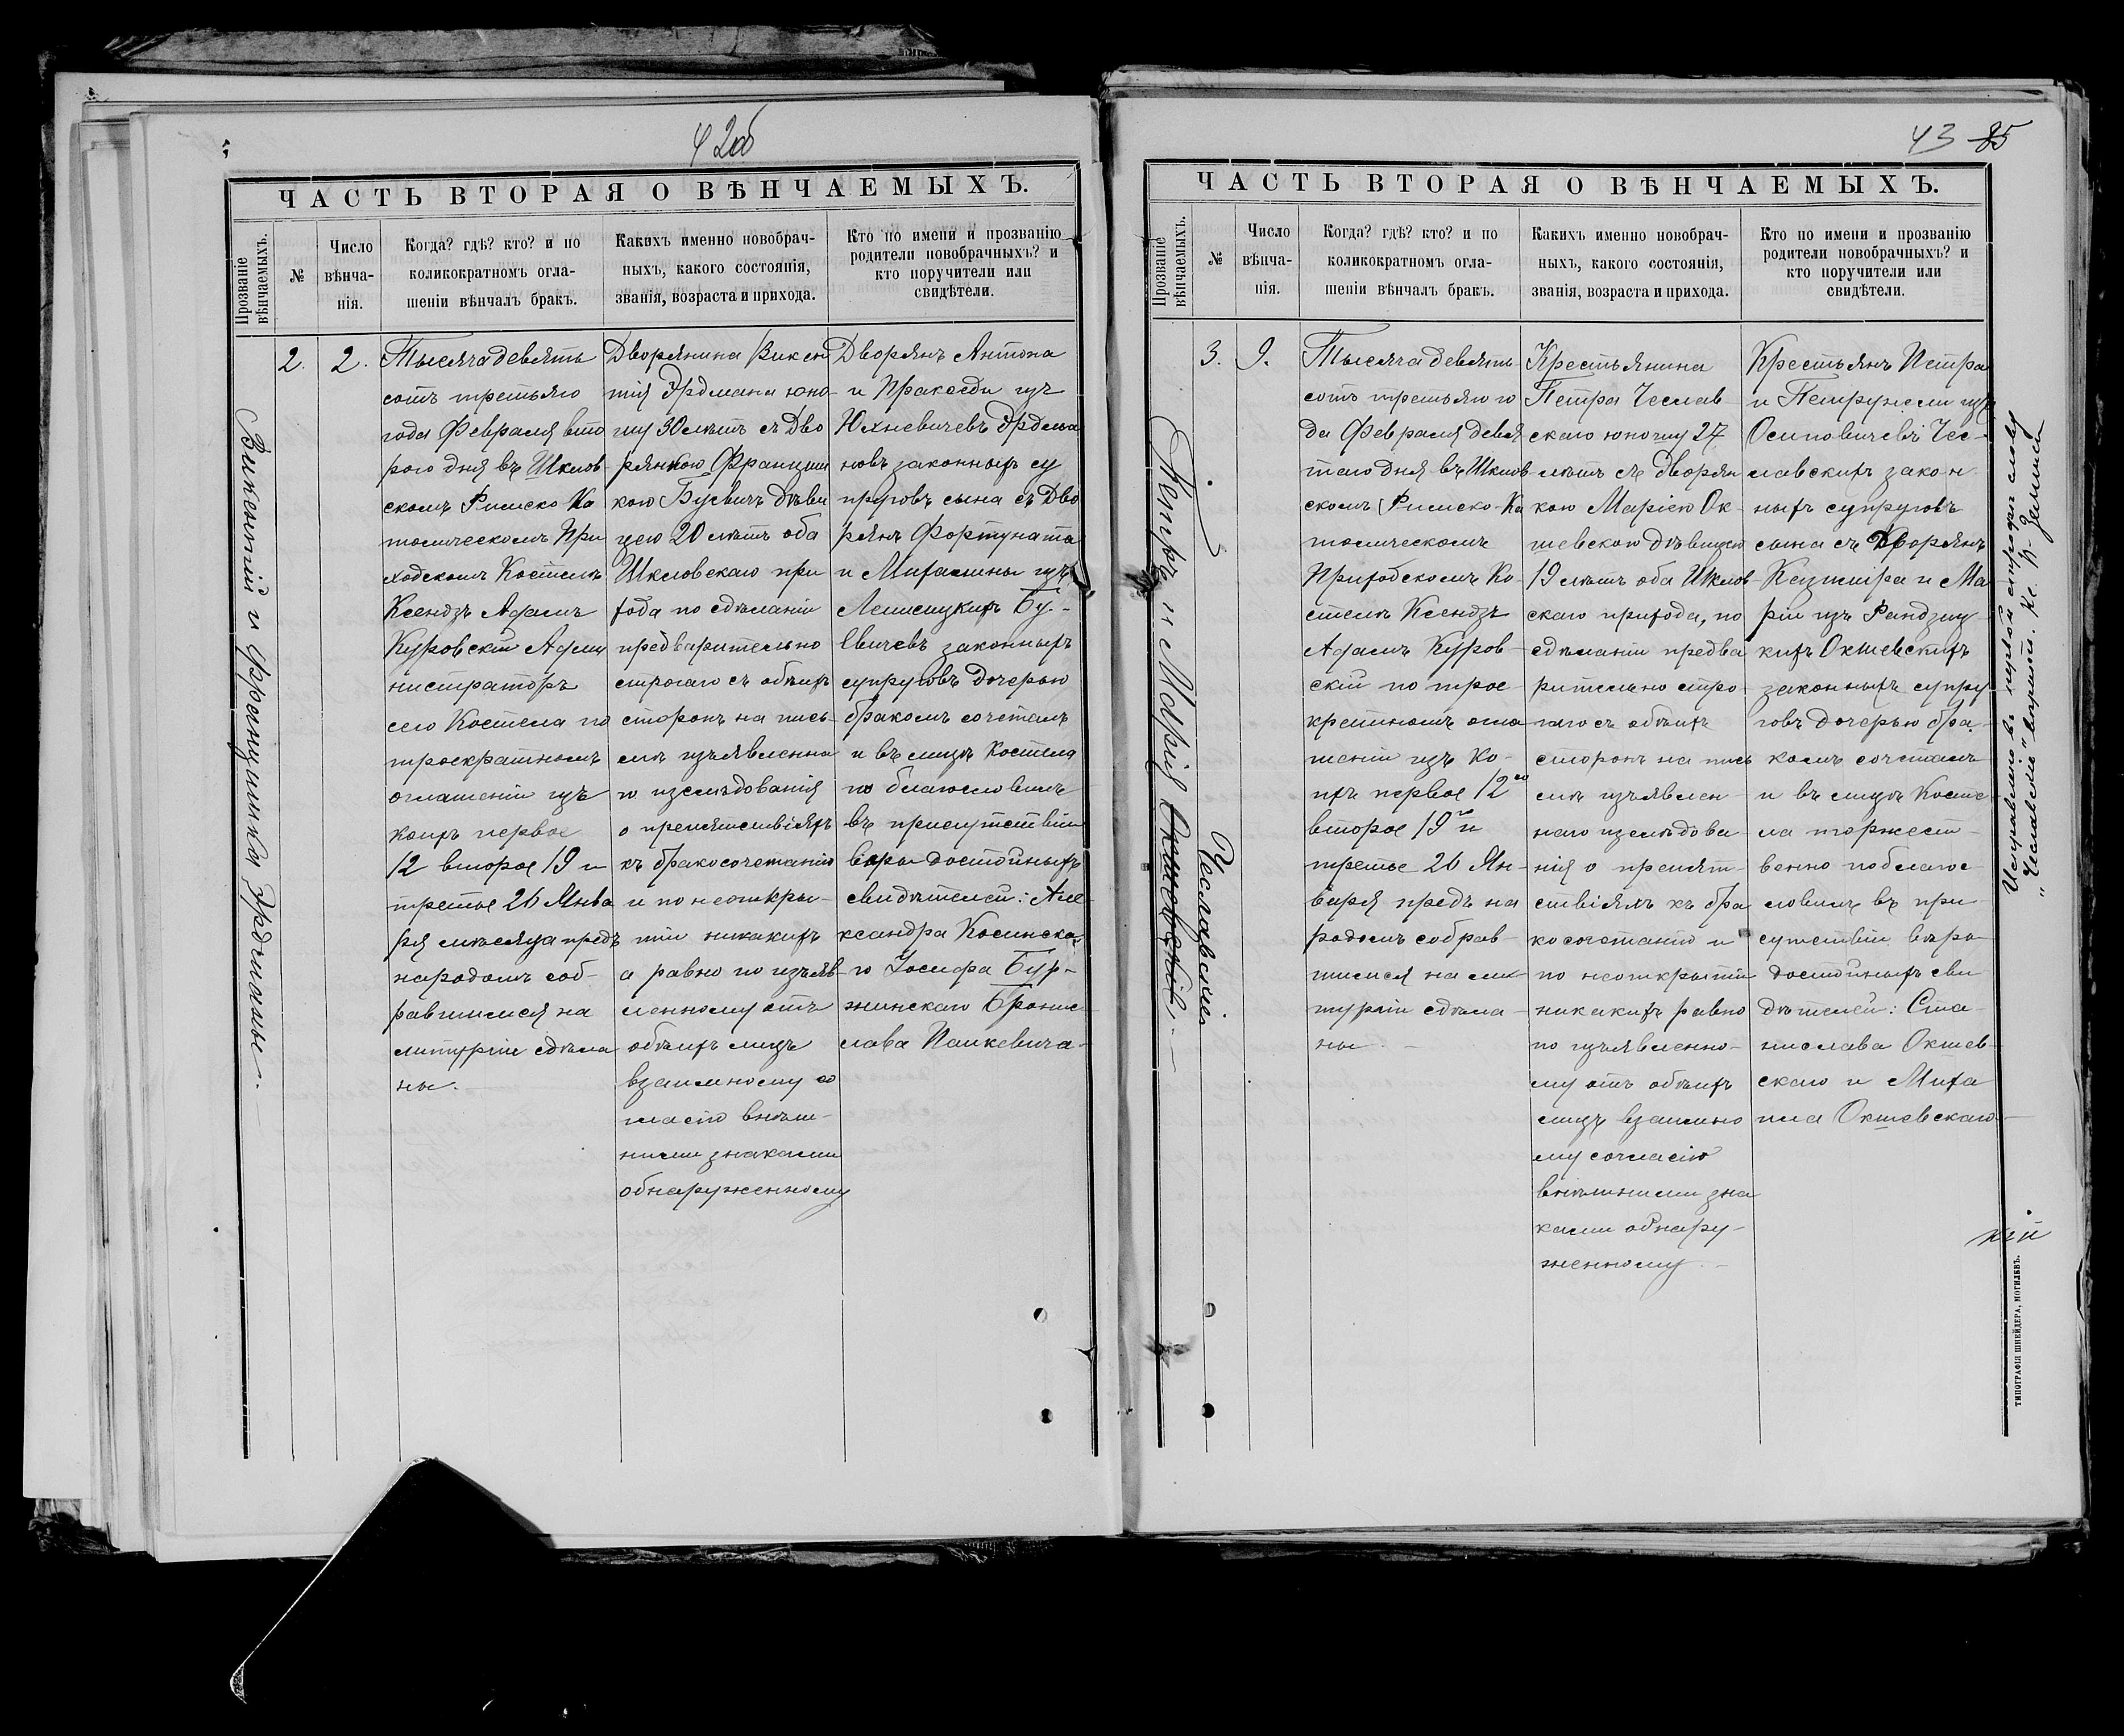 42об
ЧАСТЬ ВТОРАЯ О ВѢНЧАЕМЫХЪ.
Прозваніе
вѣнчаемыхъ.
№
Число
вѣнча-
нія.
Когда? гдѣ? кто? и по
коликократномъ огла-
шеніи вѣнчалъ бракъ.
Какихъ именно новобрач-
ныхъ, какого состоянія,
званія, возраста и прихода.
Кто по имени и прозванію
родители новобрачныхъ? и
кто поручители или
свидѣтели.
Викентій и Франциска Эрдманы.
2.
2.
Тысяча девять
сотъ третьяго
года Февраля вто
рого дня въ Шклов
скомъ Римско Ка
толическомъ При
ходскомъ Костелѣ
Ксендзъ Адамъ
Куровскій Адми
нистраторъ
сего Костела по
троекратномъ
оглашеніи изъ
коихъ первое
12 второе 19 и
третье 26 Янва
ря мѣсяца предъ
народомъ соб-
равшимся на
литургіи сдѣла
ны.
Дворянина Викен
тія Эрдмана юно-
шу 30 лѣтъ съ Дво
рянкою Францишкою
Буевичъ дѣви
цею 20 лѣтъ оба
Шкловскаго при
хода по сдѣланіи
предварительно
строгаго съ обѣихъ
сторонъ на пись-
мѣ изъявленна
го изслѣдованія
о препятствіяхъ
къ бракосочетанію
и по неоткры-
тіи никакихъ
а равно по изъяв-
ленному отъ
обѣихъ лицъ
взаимному со
гласію внѣш-
ними знаками
обнаруженному
Дворянъ Антона
и Пракседы изъ
Юхневичевъ Эрдма
новъ законныхъ су
пруговъ сына съ Дво
рянъ Фортуната
и Михалины изъ
Бу-
евичевъ законныхъ
супруговъ дочерью
бракомъ сочеталъ
и въ лицѣ Костела
благословилъ
въ присутствіи
вѣры достойныхъ
свидѣтелей: Але-
ксандра Косинска-
го Іосифа Бур-
жинскаго Бронис
лава Пашкевича.
43 85
ЧАСТЬ ВТОРАЯ О ВѢНЧАЕМЫХЪ.
Прозваніе
вѣнчаемыхъ.
№
Число
вѣнча-
нія.
Когда? гдѣ? кто? и по
коликократномъ огла-
шеніи вѣнчалъ бракъ.
Какихъ именно новобрач-
ныхъ, какого состоянія,
званія, возраста и прихода.
Кто по имени и прозванію
родители новобрачныхъ? и
кто поручители или
свидѣтели.
Петръ и Марія
Чеславскіе
3.
9.
Тысяча девять-
сотъ третьяго го
да Февраля девя
таго дня въ Шклов
скомъ Римско-Ка
толическомъ
Приходскомъ Ко-
стелѣ Ксендзъ
Адамъ Куров-
скій по трое-
кратномъ огла
шеніи изъ ко-
ихъ первое 12го
второе 19го и
третье 26 Ян-
варя предъ на
родомъ собрав-
шимся на ли-
тургіи сдѣла-
ны.
Крестьянина
Петра Чеслав
скаго юношу 27
лѣтъ съ дворян
кою Маріею Ок-
шевскою дѣвицею
19 лѣтъ оба Шклов-
скаго прихода, по
сдѣланіи предва
рительно стро-
гаго съ обѣихъ
сторонъ на пись
мѣ изъявлен-
наго изслѣдова-
нія о препят-
ствіяхъ къ бра
косочетанію и
по неоткрытіи
никакихъ равно
по изъявленно-
му отъ обѣихъ
лицъ взаимно
му согласію
внѣшними зна
ками обнару-
женному.
Крестьянъ Петра
и Петрунели изъ
Осиповичевъ Чес-
лавскихъ закон
ныхъ супруговъ
сына съ Дворянъ
Казиміра и Ма
ріи изъ
Окшевскихъ
законныхъ супру
говъ дочерью бра-
комъ сочеталъ
и въ лицѣ Косте
ла торжест-
венно поблагос
ловилъ въ при
сутствіи вѣро
достойныхъ сви
дѣтелей: Ста-
нислава Окшев-
скаго и Миха
ила Окшевскаго
Исправлено въ слову
„Чеславскіе"
кій
ТИПОГРАФІЯ ШНЕЙДЕРА, МОГИЛЕВЪ.